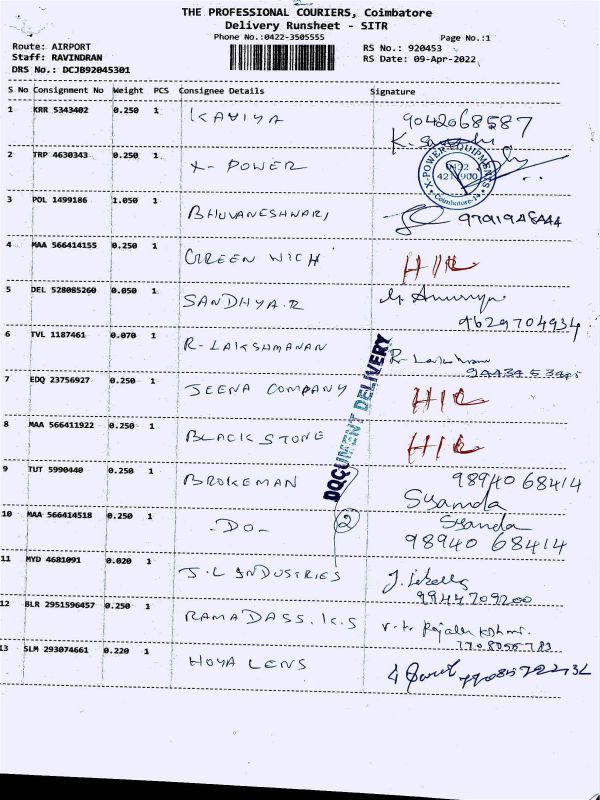 THE PROFESSIONAL COURIERS, Coimbatore
Delivery Runsheet - SITR
Phone No.:0422-3505555
Page No.:1
Route: AIRPORT
RS No.: 920453
Staff: RAVINDRAN
RS Date: 09-Apr-2022
DRS No.: DCJB92045301
S No Consignment No Weight PCS Consignee Details Signature
1 KRR 5343402 0.250 1 KAVIYA 9042068587
2 TRP 4630343 0.250 1 X-POWER
X-POWER EQUIPMENTS
0422
Coimbatore-14
3 POL 1499186 1.050 1 BHUVANESHWARI
4 MAA 566414155 0.250 1 GREEN WICH
5 DEL 528085260 0.050 1 SANDHYA.R
9629704934
6 TVL 1187461 0.070 1 R-LAKSHMANAN
7 EDQ 23756927 0.250 1 JEENA COMPANY
8 MAA 566411922 0.250 1 BLACK STONE
DOCUMENT DELIVERY
9 TUT 5990440 0.250 1 BROKEMAN 98940 68414
Syamda
10 MAA 566414518 0.250 1 -DO- 2 Syanda
98940 68414
11 MYD 4681091 0.020 1 J.L INDUSTRIES
9944709200
12 BLR 2951596457 0.250 1 RAMADASS.K.S
13 SLM 293074661 0.220 1 HOYA LENS